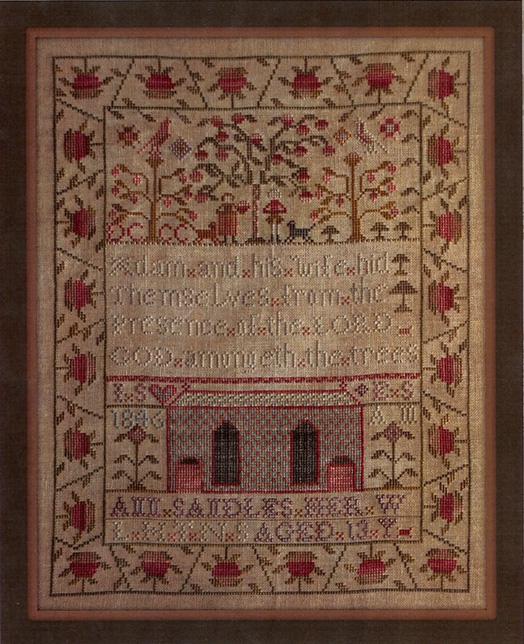 CC CC
Adam and his wife hid
Themselves from the
Presence of the LORD
GOD amongeth the trees
I S E S
1846 A M
ANN SANDLES HER W
L M X N S AGED 13 Y